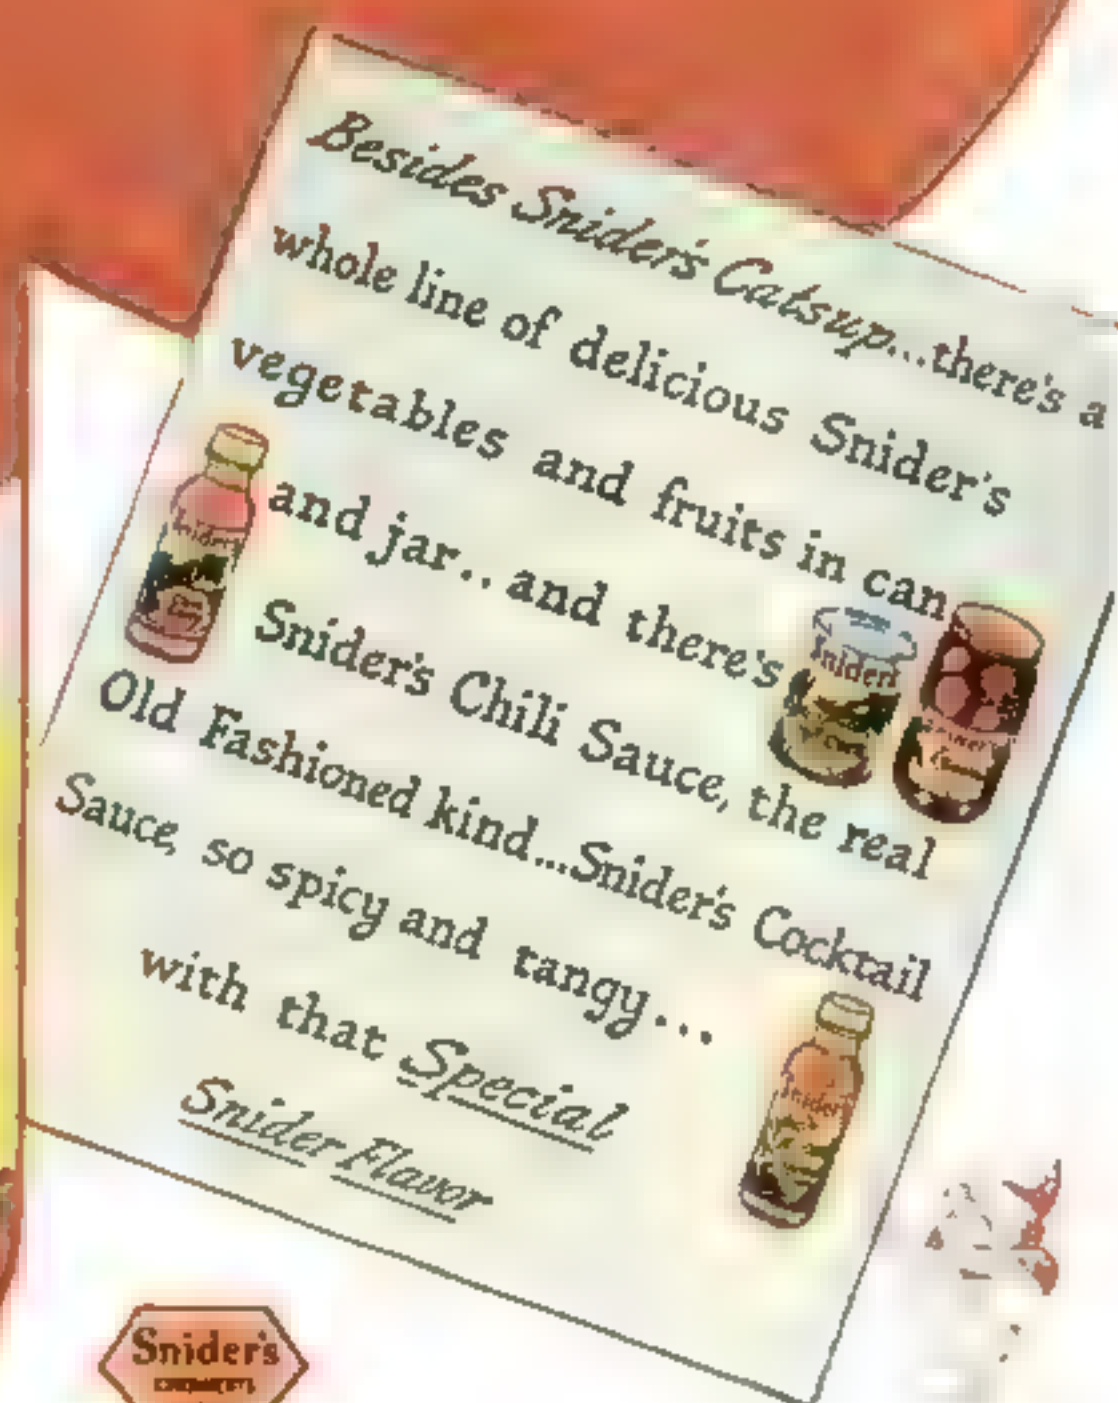 Besides Snider's Catsup...there's a
whole line of delicious Snider's
vegetables and fruits in can
and jar.. and there's
Snider's Chili Sauce, the real
Old Fashioned kind...Snider's Cocktail
Sauce, so spicy and tangy...
with that Special
Snider Flavor
Snider's
Snider's
Snider's
Snider's